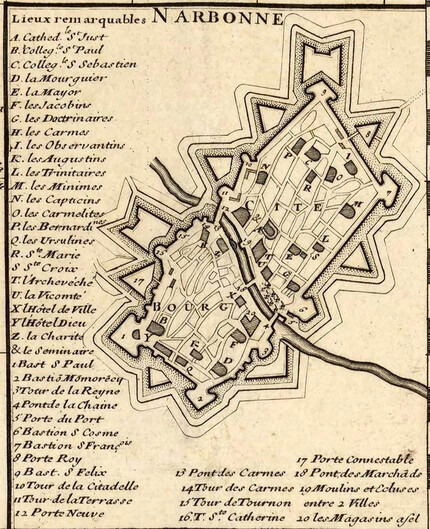 Lieux remarquables NARBONNE
A. Cathed.le St Just
B. Colleg.le St Paul
C. Colleg.le S Sebastien
D. la Mourguier
E. la Mayor
F. les Jacobins
G. les Doctrinaires
H. les Carmes
I. les Observantins
K. les Augustins
L. les Trinitaires
M. les Minimes
N. les Capucins
O. les Carmelites
P. les Bernardines
Q. les Ursulines
R. Ste Marie
S Ste Croix
T. l'Archevêché
U. la Vicomté
X l'Hôtel de Ville
Y l'Hôtel Dieu
Z. la Charité
& le Seminaire
1 Bast S Paul
2 Bastiõ Mõmorẽcy
3 Tour de la Reyne
4 Pont de la Chaine
5 Porte du Port
6 Bastion S Cosme
7 Bastion S François
8 Porte Roy
9 Bast. S Felix
10 Tour de la Citadelle
11 Tour de la Terrasse
12 Porte Neuve
13 Pont des Carmes
14 Tour des Carmes
15 Tour de Tournon
16 T. Ste Catherine
17 Porte Connestable
18 Pont des Marchãds
19 Moulins et Ecluses
entre 2 Villes
20 les Magasins
CITE
BOURG